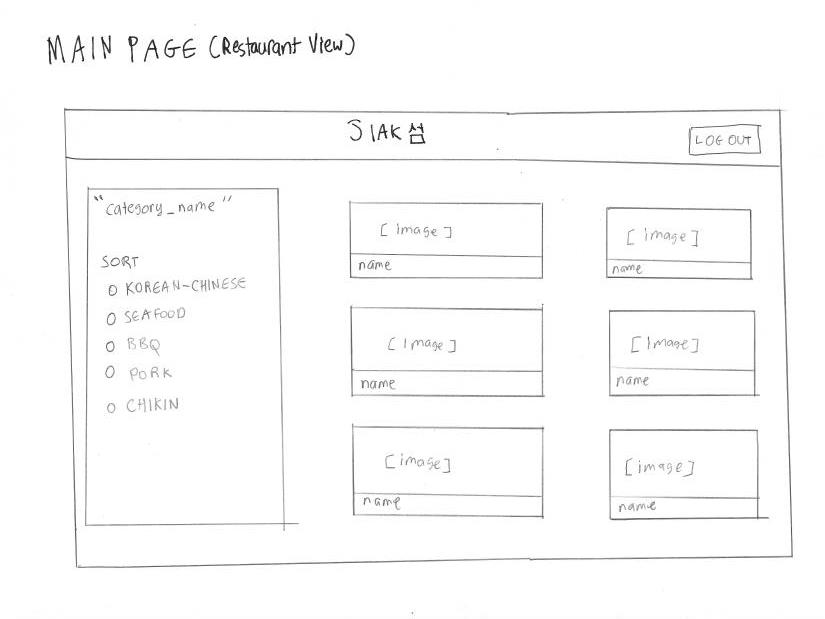 MAIN PAGE (Restaurant View)
SIAK섬
LOG OUT
"category_name"
SORT
O KOREAN-CHINESE
O SEAFOOD
O BBQ
O PORK
O CHIKIN
[image]
name
[image]
name
[image]
name
[image]
name
[image]
name
[image]
name